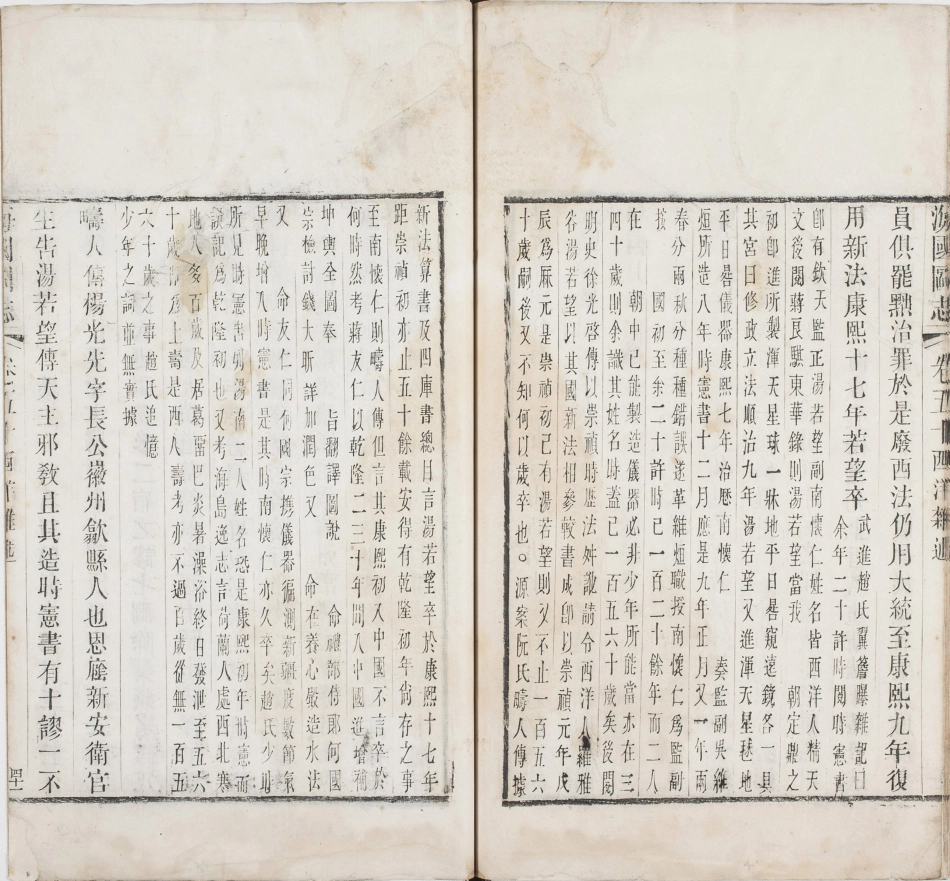 海國圖志 卷五十 西洋雜述
員俱罷黜治罪於是廢西法仍用大統至康熙九年復
用新法康熙十七年若望卒
武進趙氏翼簷曝雜記曰
余年二十許時閱時憲書
卽有欽天監正湯若望監副南懷仁姓名皆西洋人精天
文後閱蔣良騏東華錄則湯若望當我 朝定鼎之
初卽進所製渾天星球一牀地平日晷窺遠鏡各一具
其宮曰修政立法順治九年湯若望又進渾天星毬地
平日晷儀器康熙七年治歷南懷仁 奏監副吳
烜所造八年時憲書十二月應是九年正月又一年兩
春分兩秋分種種錯誤遂革 烜職授南懷仁爲監副
按 國初至余二十許時已一百二十餘年而二人
在 朝中已能製造儀器必非少年所能當亦在三
四十歲則余識其姓名時蓋已一百五六十歲矣後閱
明史徐光啓傳以崇禎時歷法舛訛請分西洋人羅雅
谷湯若望以其國新法相參較書成卽以崇禎元年戊
辰爲厤元是崇禎初已有湯若望則又不止一百五六
十歲嗣後又不知何以歲卒也。源案阮氏疇人傳據
新法算書及四庫書總目言湯若望卒於康熙十七年
距崇禎初亦止五十餘載安得有乾隆初年尙存之事
至南懷仁則疇人傳但言其康熙初入中國不言卒於
何時然考蔣友仁以乾隆二三十年間入中國進增補
坤輿全圖奉 旨翻譯圖說 命禮部侍郎何國
宗檢討錢大昕詳加潤色又 命在養心殿造水法
又 命友仁同何國宗攜儀器徧測新疆度數節氣
早晚增入時憲書是其時南懷仁亦久卒矣趙氏少時
所見時憲書列湯南二人姓名恐是康熙初年時憲而
誤記爲乾隆初也又考海島逸志言荷蘭人處西北寒
地人多百歲及居葛畱巴炎暑澡浴終日發泄至五六
十歲卽爲上壽是西人壽考亦不過百歲從無一百五
六十歲之事趙氏追憶
少年之詞並無實據
疇人傳楊光先字長公徽州歙縣人也恩廕新安衛官
生告湯若望傳天主邪教且其造時憲書有十謬一不